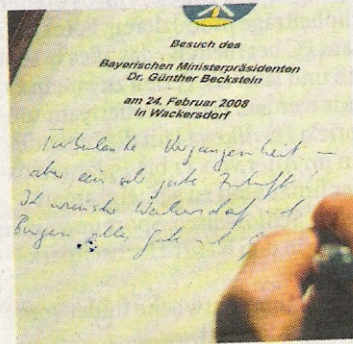 Besuch des
Bayerischen Ministerpräsidenten
Dr. Günther Beckstein
am 24. Februar 2008
in Wackersdorf
Turbulente Vergangenheit –
aber ein sehr gute Zukunft!
Ich wünsche Wackersdorf und
Bürgern alles Gute und